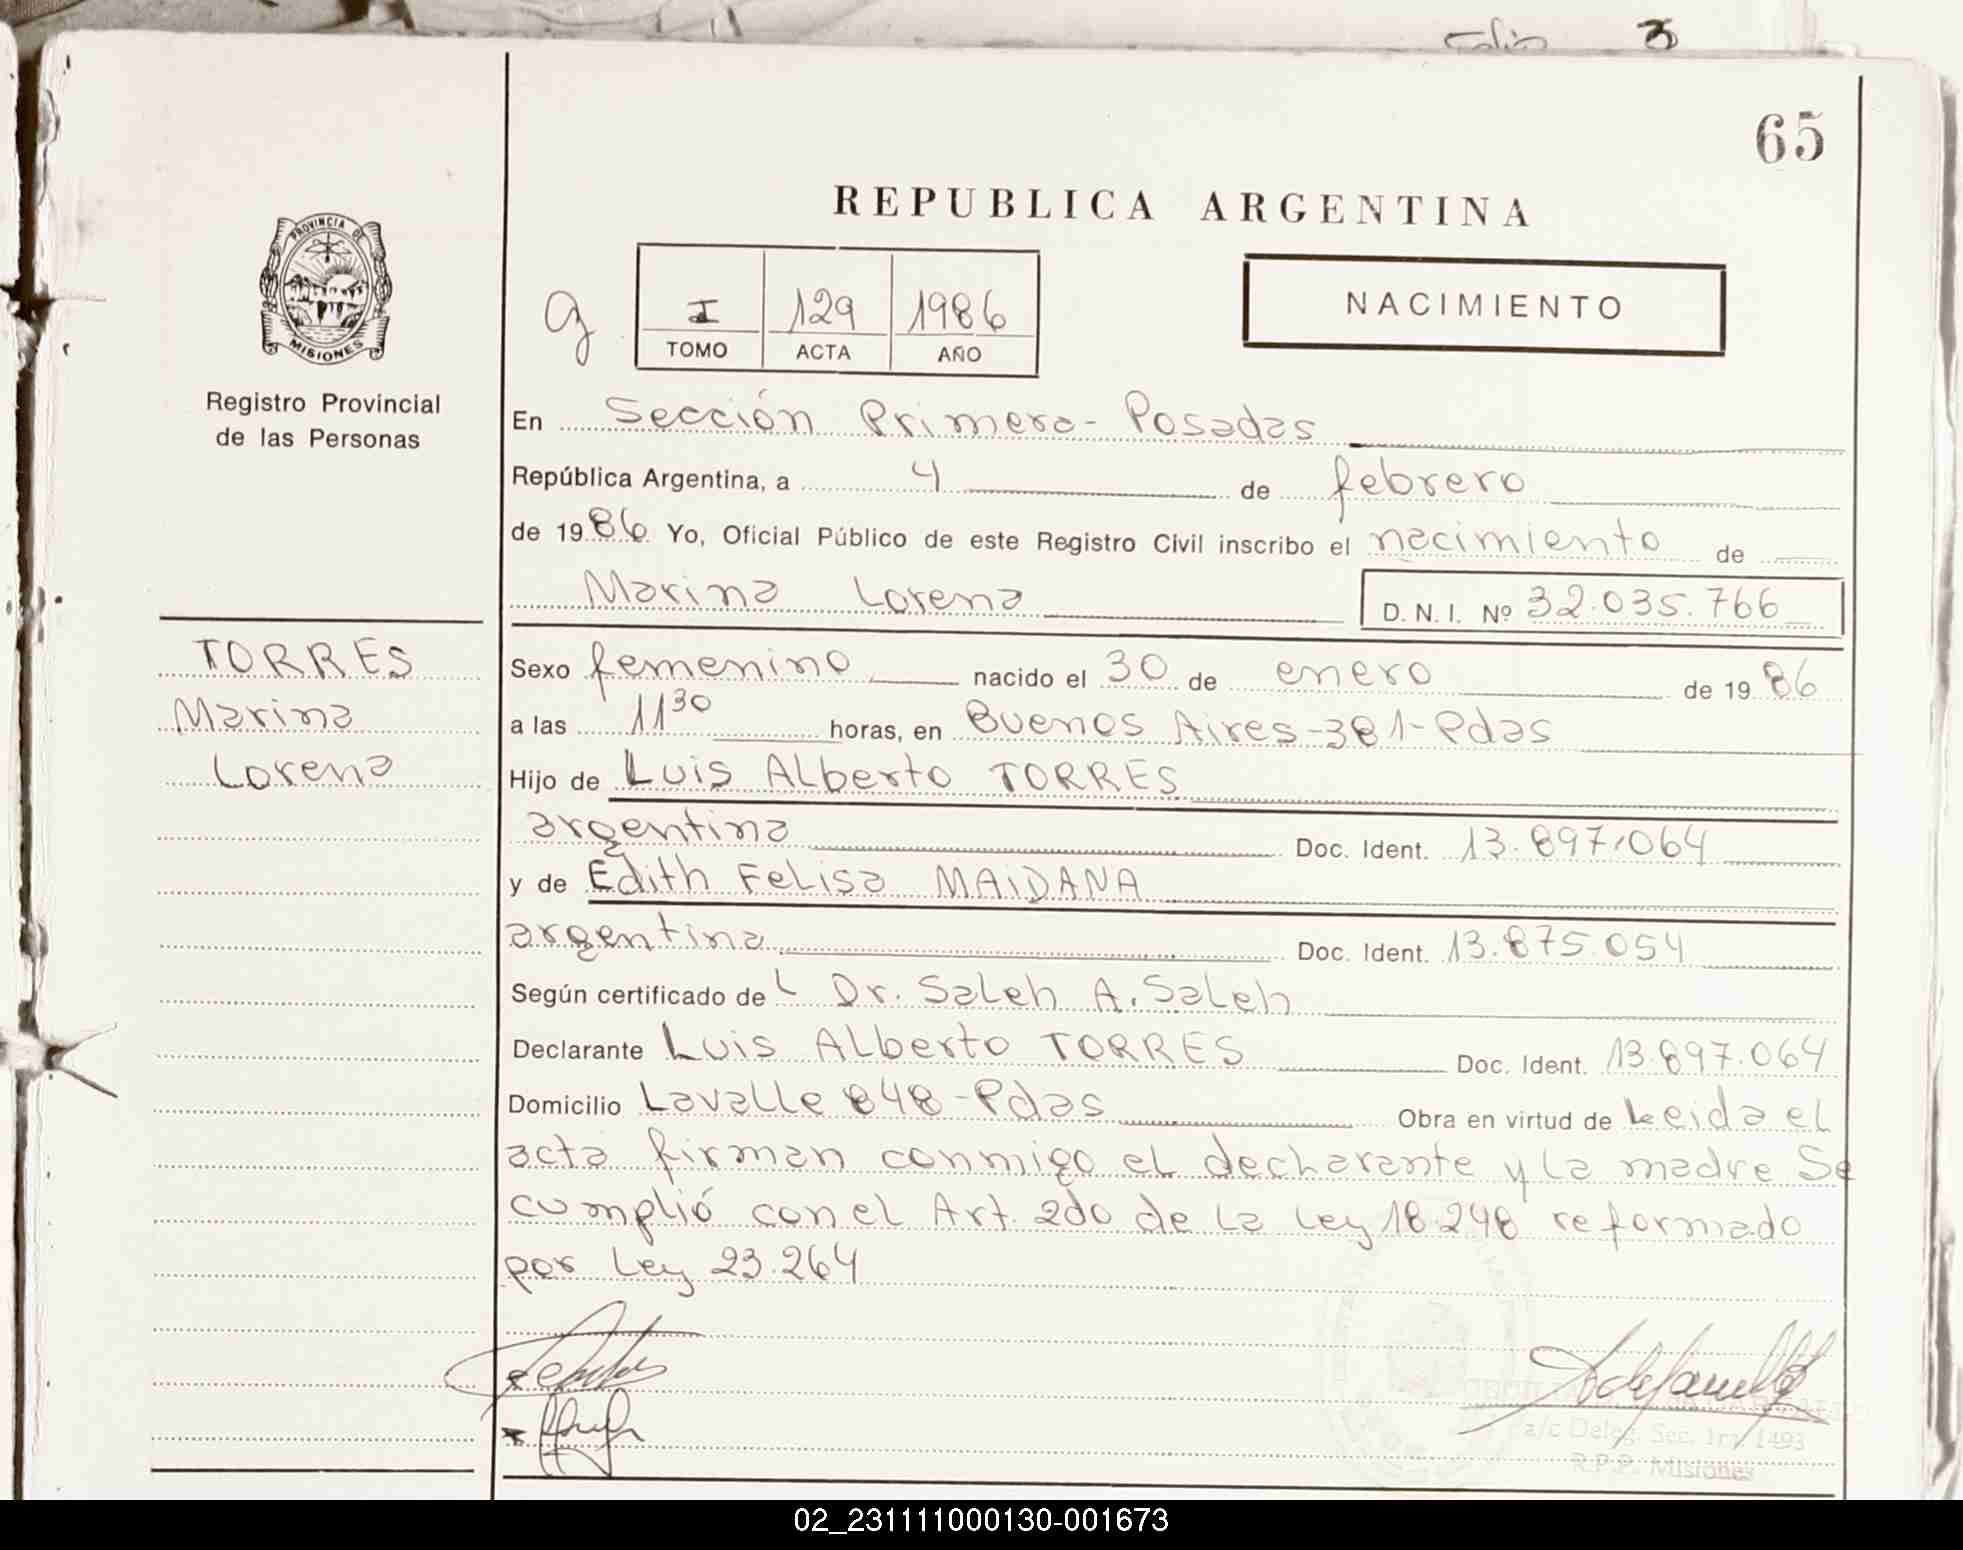 Folio 3
65
REPUBLICA ARGENTINA
PROVINCIA DE
MISIONES
Registro Provincial
de las Personas
g
I 129 1986
TOMO ACTA AÑO
NACIMIENTO
En Sección Primera - Posadas
República Argentina, a 4 de febrero
de 1986 Yo, Oficial Público de este Registro Civil inscribo el nacimiento de
Marina Lorena D. N. I. Nº 32.035.766
TORRES
Marina
Lorena
Sexo femenino nacido el 30 de enero de 1986
a las 11 30 horas, en Buenos Aires-381-Pdas
Hijo de Luis Alberto TORRES
argentina Doc. Ident. 13.897.064
y de Edith Felisa MAIDANA
argentina Doc. Ident. 13.875.054
Según certificado de L Dr. Saleh A. Saleh
Declarante Luis Alberto TORRES Doc. Ident. 13.897.064
Domicilio Lavalle 848-Pdas Obra en virtud de Leida el
acta firman conmigo el declarante y la madre Se
cumplió con el Art. 2do de la Ley 18.248 reformado
por Ley 23.264
a/c Deleg. Sec. 1ra. 1493
R.P.P. Misiones
02_231111000130-001673